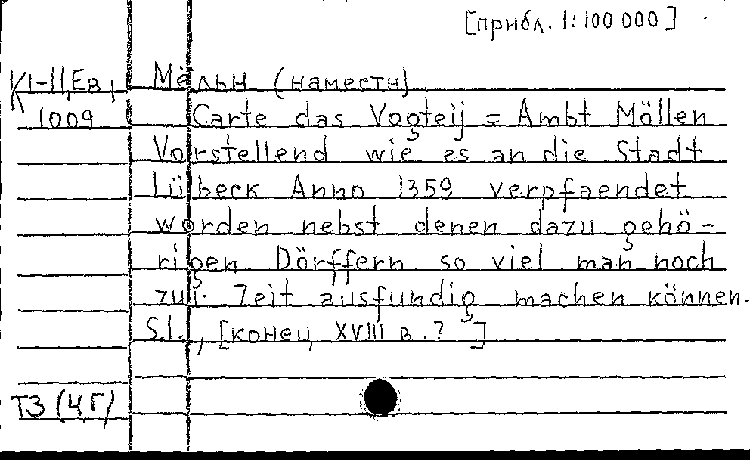 [прибл. 1:100 000]
К1-11,Ев, Мёльн (наместн)
1009 Carte das Vogteij = Ambt Möllen
Vorstellend wie es an die Stadt
Lübeck Anno 1359 verpfaendet
worden nebst denen dazu gehö-
rigen Dörffern so viel man noch
zur Zeit ausfundig machen können.
S.l., [конец XVIII в.?]
ТЗ (4Г)